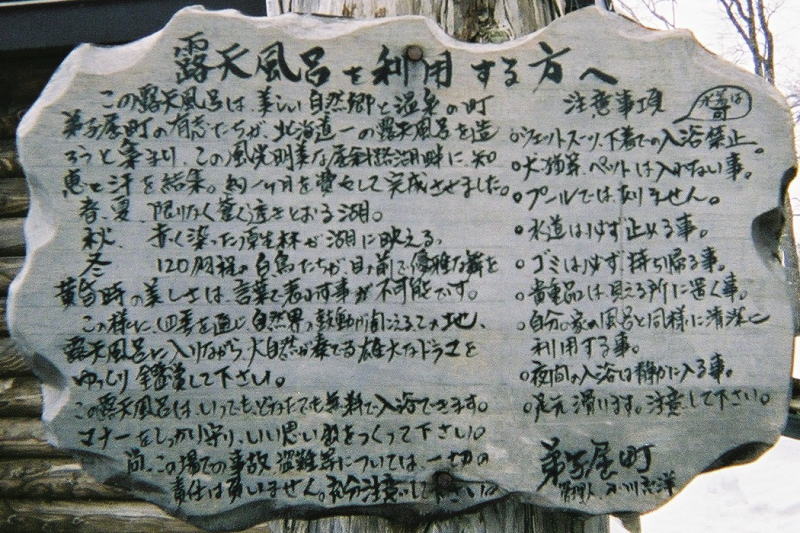 露天風呂を利用する方へ
この露天風呂は、美しい自然郷と温泉の町
弟子屈町の有志たちが、北海道一の露天風呂を造
ろうと集まり、この風光明美な屈斜路湖畔に、知
恵と汗を結集。約一ヶ月を費やして完成させました。
春、夏 限りなく蒼く透きとおる湖。
秋、 赤く染った原生林が湖に映える。
冬 120羽程の白鳥たちが、目の前で優雅な舞を
黄昏時の美しさは、言葉で表わす事が不可能です。
この様に、四季を通じ自然界の鼓動が聞こえるこの地、
露天風呂に入りながら、大自然が奏でる雄大なドラマを
ゆっくり鑑賞して下さい。
この露天風呂は、いつでも、どなたでも無料で入浴できます。
マナーをしっかり守り、いい思い出をつくって下さい。
尚、この場での事故、盗難等については、一切の
責任は負いません。充分注意して下さい。
注意事項
水着は可
○ウェットスーツ、下着での入浴禁止。
○犬猫等、ペットは入れない事。
○プールではありません。
○水道は必ず止める事。
○ゴミは必ず持ち帰る事。
○貴重品は見える所に置く事。
○自分の家の風呂と同様に清潔に
利用する事。
○夜間の入浴は静かに入る事。
○足元滑います。注意して下さい。
弟子屈町
管理人